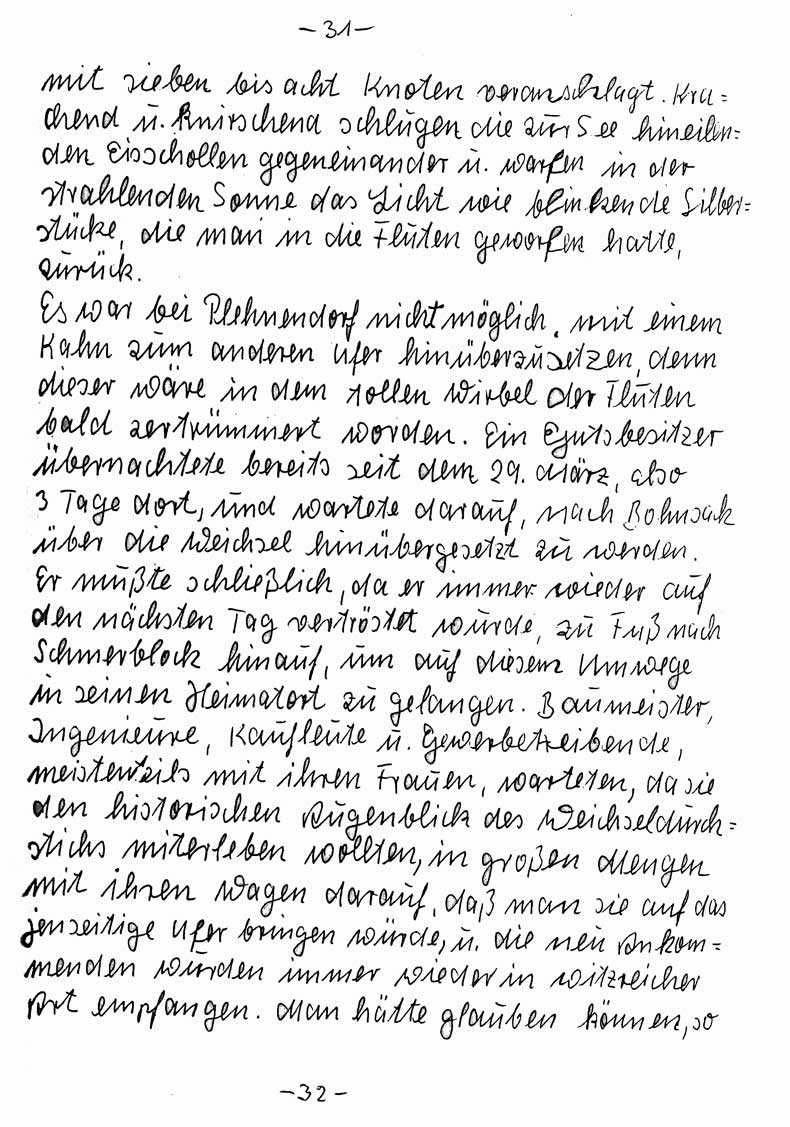 -31-
mit sieben bis acht Knoten veranschlagt. Kra=
chend u. knirschend schlugen die zur See hineilen=
den Eisschollen gegeneinander u. warfen in der
strahlenden Sonne das Licht wie blinkende Silber=
stücke, die man in die Fluten geworfen hatte,
zurück.
Es war bei Plehnendorf nicht möglich, mit einem
Kahn zum anderen Ufer hinüberzusetzen, denn
dieser wäre in dem tollen Wirbel der Fluten
bald zertrümmert worden. Ein Gutsbesitzer
übernachtete bereits seit dem 29. März, also
3 Tage dort, und wartete darauf, nach Bohnsack
über die Weichsel hinübergesetzt zu werden.
Er mußte schließlich, da er immer wieder auf
den nächsten Tag vertröstet wurde, zu Fuß nach
Schmerblock hinauf, um auf diesem Umwege
in seinen Heimatort zu gelangen. Baumeister,
Ingenieure, Kaufleute u. Gewerbetreibende,
meistenteils mit ihren Frauen, warteten, da sie
den historischen Augenblick des Weichseldurch=
stichs miterleben wollten, in großen Mengen
mit ihren Wagen darauf, daß man sie auf das
jenseitige Ufer bringen würde, u. die neu Ankom=
menden wurden immer wieder in witzreicher
Art empfangen. Man hätte glauben können, so
-32-